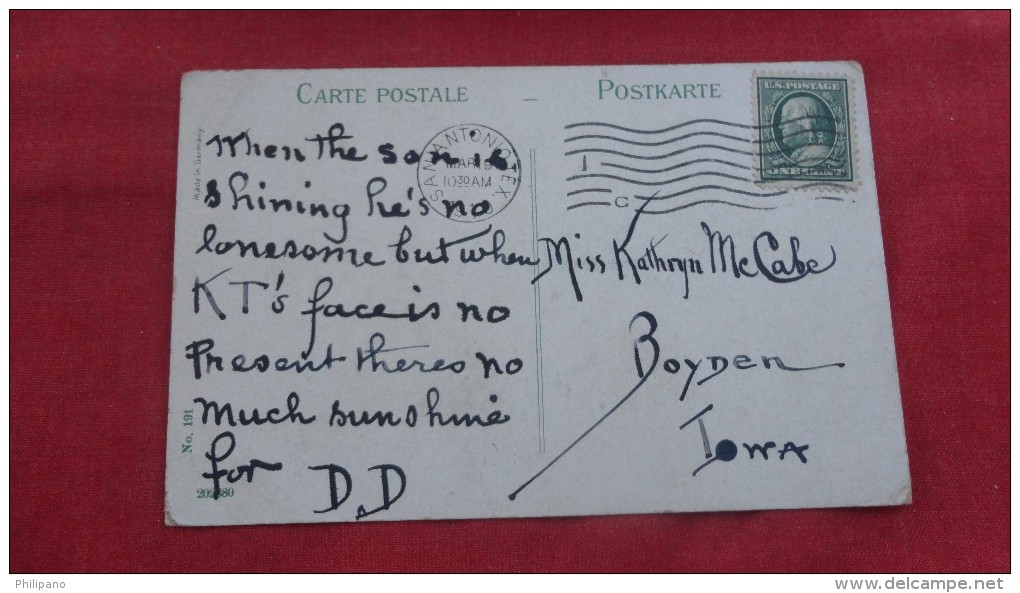 CARTE POSTALE — POSTKARTE
U.S. POSTAGE
ONE CENT
SAN ANTONIO TEX.
MAR 9
10 30 AM
1
C
Made in Germany.
When the son is
shining he's no
lonesome but when
KT's face is no
Present theres no
much sunshine
for
D.D
Miss Kathryn McCabe
Boyden
Iowa
No. 191
Philipano
www.delcampe.net